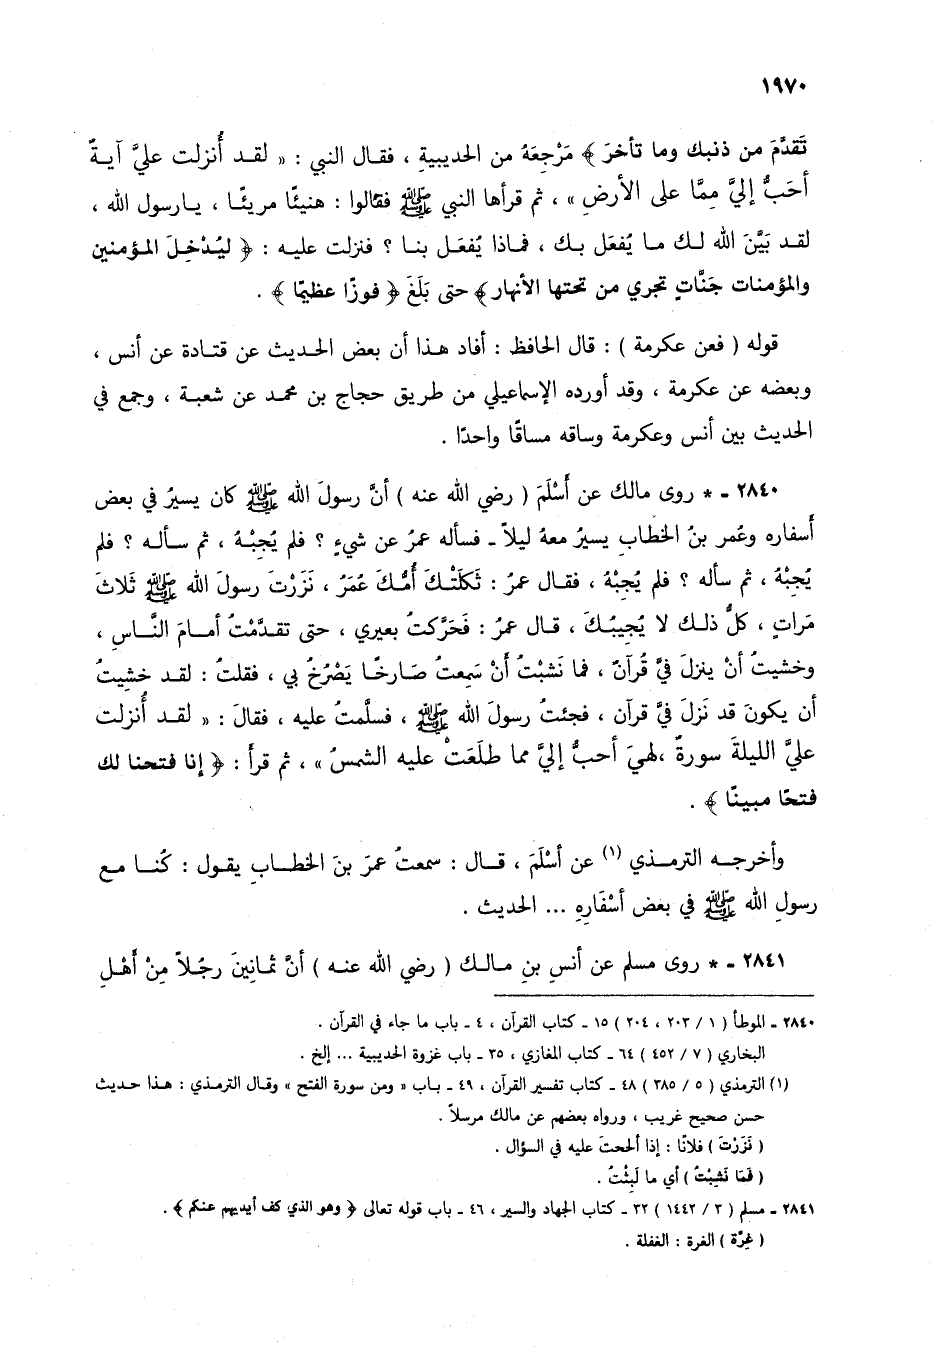 ١٩٧٠
تَقَدَّمَ من ذنبك وما تأخرَ ﴾ مَرْجِعَهُ من الحديبيةِ ، فقـال النبي : « لقـد أُنزلت عليَّ آيـةٌ
أحَبُّ إليَّ مِمَّا على الأرضِ » ، ثم قرأها النبي ﷺ فقالوا : هنيئًا مريئًـا ، يـارسول الله ،
لقـد بَيَّنَ الله لـك مـا يُفعَل بـك ، فـاذا يُفعَـل بنـا ؟ فنزلت عليـه : ﴿ ليُدْخِـلَ المـؤمنين
والمؤمنات جَنَّاتٍ تجري من تحتها الأنهار﴾ حتى بَلَغَ ﴿ فوزًا عظيمًا ﴾ .
قوله ( فعن عكرمة ) : قال الحافظ : أفاد هـذا أن بعض الحـديث عن قتـادة عن أنس ،
وبعضه عن عكرمة ، وقد أورده الإسماعيلي من طريق حجاج بن محمد عن شعبـة ، وجمع في
الحديث بين أنس وعكرمة وساقه مساقًا واحدًا .
٢٨٤٠ - * روى مالك عن أَسْلَمَ ( رضي الله عنه ) أنَّ رسولَ الله ﷺ كان يسيرُ في بعض
أسفاره وعُمر بنُ الخطابِ يسيرُ معهُ ليلاً - فسأله عمرُ عن شيءٍ ؟ فلم يُجبْـهُ ، ثم سـأله ؟ فلم
يُجبْهُ ، ثم سأله ؟ فلم يُجبْهُ ، فقـال عمرُ : ثَكَلَتْـكَ أُمُّـكَ عُمَرُ ، نَزَرْتَ رسولَ الله ﷺ ثلاثَ
مَراتٍ ، كلُّ ذلـك لا يُجيبُـكَ ، قـال عمرُ : فَحَرَّكتُ بعيري ، حتى تقـدَّمْتُ أمـامَ النَّـاسِ ،
وخشيتُ أنْ ينزلَ فيَّ قُرآنٌ ، فما نَشبْتُ أنْ سَمِعتُ صَـارخًـا يَصْرُخُ بي ، فقلتُ : لقـد خشيتُ
أن يكونَ قد نَزلَ فيَّ قرآن ، فجئتُ رسولَ الله ﷺ ، فسلَّمتُ عليه ، فقالَ : « لقـد أُنزلت
عليَّ الليلةَ سورةٌ ،لهيَ أحبُّ إليَّ مما طلَعَتْ عليه الشمسُ » ، ثم قرأ : ﴿ إنا فتحنا لك
فتحًا مبينًا ﴾ .
وأخرجـه الترمـذي (١) عن أَسْلَمَ ، قـال : سمعتُ عمرَ بنَ الخطـابِ يقـول : كُنـا مع
رسولِ الله ﷺ في بعض أسْفَارِهِ ... الحديث .
٢٨٤١ - * روى مسلم عن أنسِ بنِ مـالـك ( رضي الله عنـه ) أنَّ ثمـانينَ رجُـلاً مِنْ أَهْـلِ
٢٨٤٠ - الموطأ ( ١ / ٢٠٣ ، ٢٠٤ ) ١٥ - كتاب القرآن ، ٤ - باب ما جاء في القرآن .
البخاري ( ٧ / ٤٥٢ ) ٦٤ - كتاب المغازي ، ٣٥ - باب غزوة الحديبية ... إلخ .
(١) الترمذي ( ٥ / ٣٨٥ ) ٤٨ - كتاب تفسير القرآن ، ٤٩ - بـاب « ومن سورة الفتح » وقـال الترمـذي : هـذا حـديث
حسن صحيح غريب ، ورواه بعضهم عن مالك مرسلاً .
( نَزَرْتَ ) فلانًا : إذا ألححتَ عليه في السؤال .
( فَمَا نَشِبْتُ ) أي ما لَبِثْتُ .
٢٨٤١ - مسلم ( ٣ / ١٤٤٢ ) ٣٢ - كتاب الجهاد والسير ، ٤٦ - باب قوله تعالى ﴿ وهو الذي كف أيديهم عنكم ﴾ .
( غِرَّة ) الغرة : الغفلة .